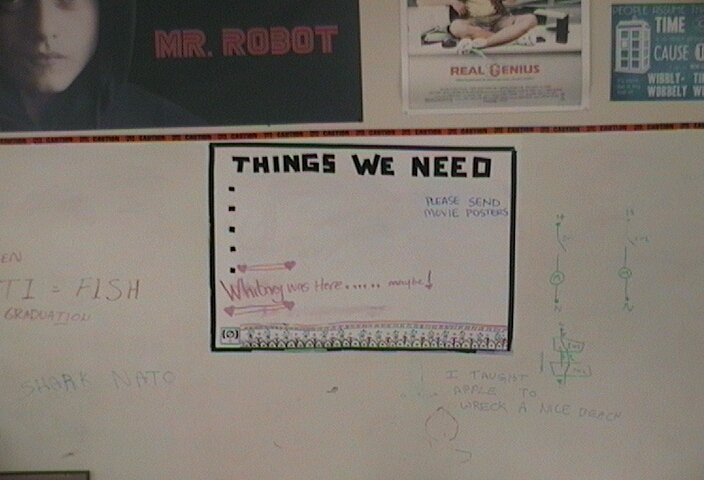 MR. ROBOT
REAL GENIUS
PEOPLE ASSUME
TIME
CAUSE
WIBBLY-
WOBBLY
CAUTION CAUTION CAUTION CAUTION CAUTION CAUTION
THINGS WE NEED
PLEASE SEND
MOVIE POSTERS
Whitney was Here...... maybe!
EN
TI = FISH
GRADUATION
SHARK NATO
I TAUGHT
APPLE TO
WRECK A NICE BEACH
N
N